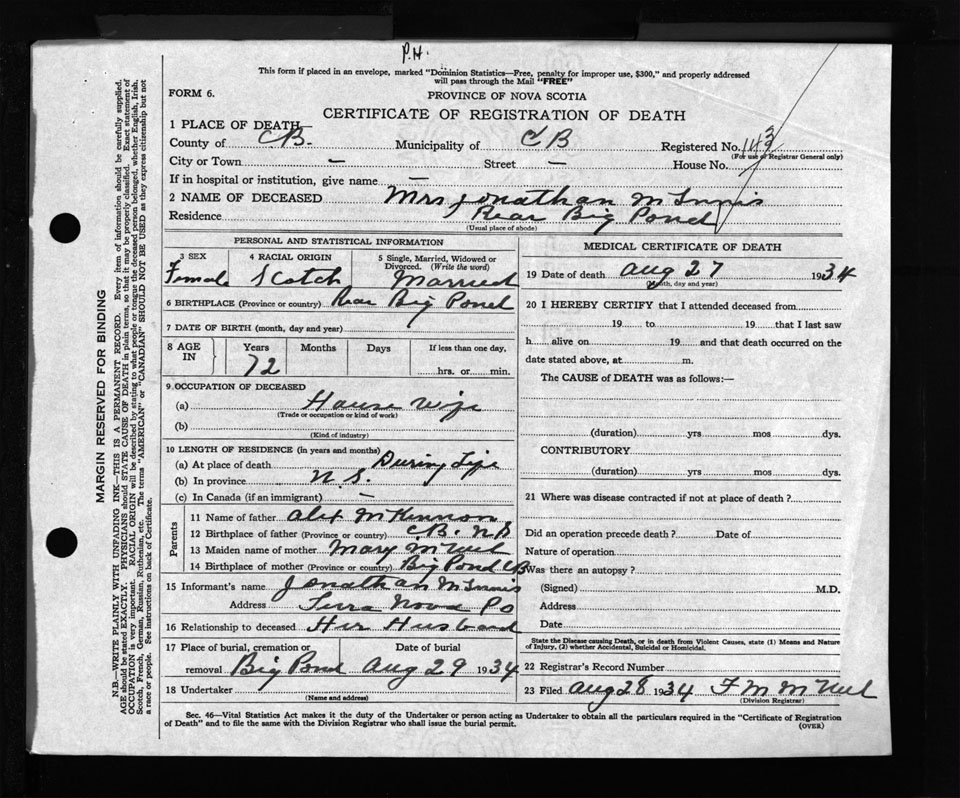 P.H.
This form if placed in an envelope, marked "Dominion Statistics—Free, penalty for improper use, $300," and properly addressed
will pass through the Mail "FREE"
FORM 6.
PROVINCE OF NOVA SCOTIA
CERTIFICATE OF REGISTRATION OF DEATH
1 PLACE OF DEATH—
County of CB. Municipality of CB Registered No. 1493
(For use of Registrar General only)
City or Town — Street — House No.
If in hospital or institution, give name —
2 NAME OF DECEASED Mrs Jonathan McInnis
Residence Rear Big Pond
(Usual place of abode)
PERSONAL AND STATISTICAL INFORMATION
3 SEX 4 RACIAL ORIGIN 5 Single, Married, Widowed or
Divorced. (Write the word)
Female Scotch Married
6 BIRTHPLACE (Province or country) Rear Big Pond
7 DATE OF BIRTH (month, day and year)
8 AGE IN Years Months Days If less than one day,
72 hrs. or min.
9 OCCUPATION OF DECEASED
(a) House wife
(Trade or occupation or kind of work)
(b)
(Kind of industry)
10 LENGTH OF RESIDENCE (in years and months)
(a) At place of death During Life
(b) In province N.S.
(c) In Canada (if an immigrant) —
Parents
11 Name of father Alex McKinnon
12 Birthplace of father (Province or country) C.B. N.S
13 Maiden name of mother Mary McNeil
14 Birthplace of mother (Province or country) Big Pond CB
15 Informant's name Jonathan McInnis
Address Terra Nova Po
16 Relationship to deceased Her Husband
17 Place of burial, cremation or Date of burial
removal Big Pond Aug 29 1934
18 Undertaker
(Name and address)
MEDICAL CERTIFICATE OF DEATH
19 Date of death Aug 27 1934
(Month, day and year)
20 I HEREBY CERTIFY that I attended deceased from
19 to 19 that I last saw
h alive on 19 and that death occurred on the
date stated above, at m.
The CAUSE of DEATH was as follows:—
(duration) yrs mos dys.
CONTRIBUTORY
(duration) yrs mos dys.
21 Where was disease contracted if not at place of death?
Did an operation precede death? Date of
Nature of operation
Was there an autopsy?
(Signed) M.D.
Address
Date
State the Disease causing Death, or in death from Violent Causes, state (1) Means and Nature
of Injury, (2) whether Accidental, Suicidal or Homicidal.
22 Registrar's Record Number
23 Filed Aug 28 1934 F M McNeil
(Division Registrar)
Sec. 46—Vital Statistics Act makes it the duty of the Undertaker or person acting as Undertaker to obtain all the particulars required in the "Certificate of Registration
of Death" and to file the same with the Division Registrar who shall issue the burial permit.
(OVER)
MARGIN RESERVED FOR BINDING
N.B.—WRITE PLAINLY WITH UNFADING INK—THIS IS A PERMANENT RECORD. Every item of information should be carefully supplied.
AGE should be stated EXACTLY. PHYSICIANS should STATE CAUSE OF DEATH in plain terms, so that it may be properly classified. Exact statement of
OCCUPATION is very important. RACIAL ORIGIN will be described by stating to what people or tongue the deceased person belonged, whether English, Irish,
Scotch, French, German, Russian, Ruthenian, etc. The terms "AMERICAN" or "CANADIAN" SHOULD NOT BE USED as they express citizenship but not
a race or people. See instructions on back of Certificate.